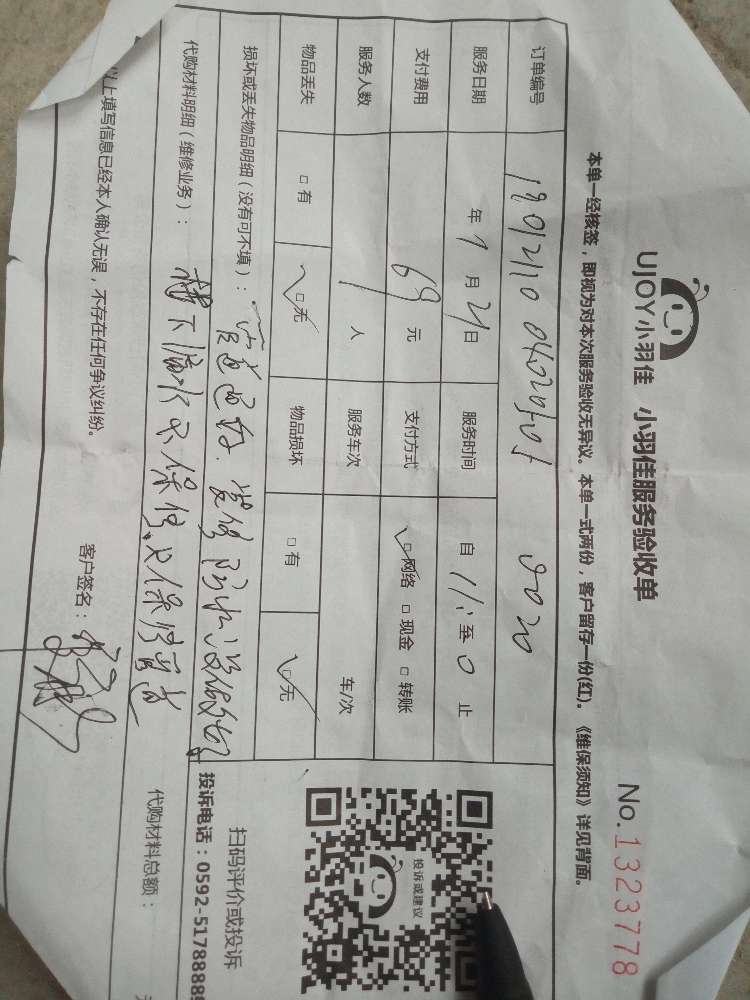 UJOY小羽佳 小羽佳服务验收单
No.1323778
本单一经核签，即视为对本次服务验收无异议。本单一式两份，客户留存一份(红)。《维保须知》详见背面。
订单编号
服务日期 年 月 日 服务时间 自 至 止
支付费用 69 元 支付方式 ☑网络 □现金 □转账
服务人数 1 人 服务车次 车/次
物品丢失 □有 ☑无 物品损坏 □有 ☑无
损坏或丢失物品明细（没有可不填）：
代购材料明细（维修业务）： 楼下漏水不保修.只保修管道
代购材料总额：
以上填写信息已经本人确认无误，不存在任何争议纠纷。
客户签名：
投诉或建议
扫码评价或投诉
投诉电话：0592-5178888